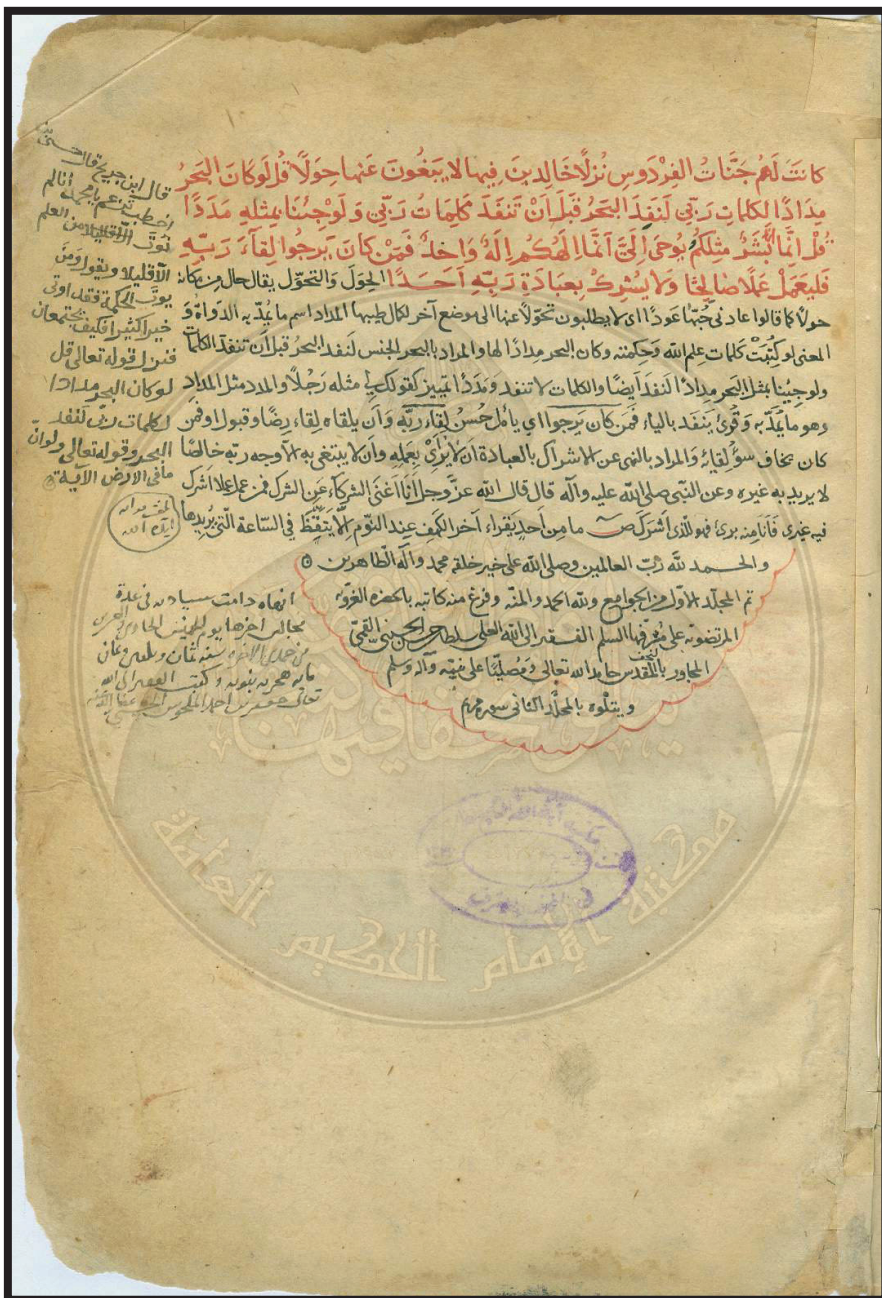 كانَتْ لَهُمْ جَنَّاتُ الفِرْدَوسِ نُزُلًا خَالِدينَ فِيها لا يَبغُونَ عَنها حِوَلًا قُل لَو كانَ البَحرُ
مِدَادًا لكلماتِ رَبّي لَنَفِدَ البَحرُ قَبلَ اَنْ تَنفَدَ كَلِماتُ رَبّي وَلَوجِئنَا بمثلهِ مَدَدًا
قُلْ انَّما أنا بَشَرٌ مثلكُم يُوحَى اِلَيَّ اَنَّما اِلهُكُم اِلهٌ وَاحِدٌ فَمَنْ كانَ يَرجوا لِقآءَ رَبِّهِ
فَليَعمَلْ عَمَلًا صَالِحًا وَلا يُشرِكْ بِعِبَادَةِ رَبِّهِ اَحَدًا الحِوَل وَالتحوّل يقال حال من مكانه
حِولًا كما قالوا عادني حبّها عَودًا اى لا يطلبون تحوّلا عنها الى موضع آخر لكمال طيبها المداد اسم ما يمدّ به الدواة وَ
المعنى لو كُتِبَتْ كلمات علم الله وحكمته وكان البحر مدادًا لها والمراد بالبحر الجنس لَنفد البحر قبل اَن تنفد الكلمات
ولوجِئنا بمثل البَحر مدادًا لَنفدَ اَيضًا والكلمات لا تنفد وَمَدَدًا تمييز كقولك لي مثله رَجُلًا والمدد مثل المداد
وهو ما يُمدّ به وَقُرئ يَنفد بالياء فمَن كان يَرجوا اى يأمل حُسنَ لِقاء ربّه وَاَن يلقاه لِقاء رِضًا وقبول او فمن
كان يخاف سوء لقائه وَالمراد بالنهى عن الاشراك بالعبادة اَن لا يُرائ بعمله وان لا يبتغى به الّا وجه ربّه خالصًا
لا يريد به غيره وعن النّبي صلى الله عليه وآله قال قال الله عزّ وجلّ اَنا اَغنى الشركاء عن الشرك فمن عمل عملا اشرك
فيه غيرى فَاَنا منه برئ فهو للذى اَشرك ص مامن اَحد يقراء آخر الكهف عند النّوم الّا يتيقّظ في السّاعة الّتي يُريدها
والحمد لله رَبّ العالمين وصلى الله على خير خلقه محمد وآله الطّاهرين
تم المجلّد الاوّل من الجوامع ولله الحمد والمنّه وفرغ منه كاتبه بالحضره الغرويّه
المرتضويّه على مشرّفها السلم الفقير الى الله الغنى الحسينى القمى
المجاور بالنجف المقدس حامدا لله تعالى وَمُصليًا على نبيّه وآله وسلم
ويتلوه بالمجلّد الثانى سوره مريم
قال ابن جريج قال
اخطب تزعم يا محمد أنا لم
نؤت الّا قليلا من العلم
الّا قليلا ويقول وَمَن
يؤت الحكمة فقد اوتى
خيرا كثيرا فكيف يجتمعان
فنزل قوله تعالى قل
لو كان البحر مدادا
لكلمات ربّى لنفد
البحر وقوله تعالى ولو انّ
ما في الارض الآية
انهاه دامت في عدة
مجالس اخرها يوم الخميس الحادى والعشرين
من جمادى الاخره سنه ثمان وثلاثين وثمان
مايه هجريه نبويه وكتب الفقير الى الله
تعالى جعفر بن احمد
مكتبة الإمام الحكيم العامة